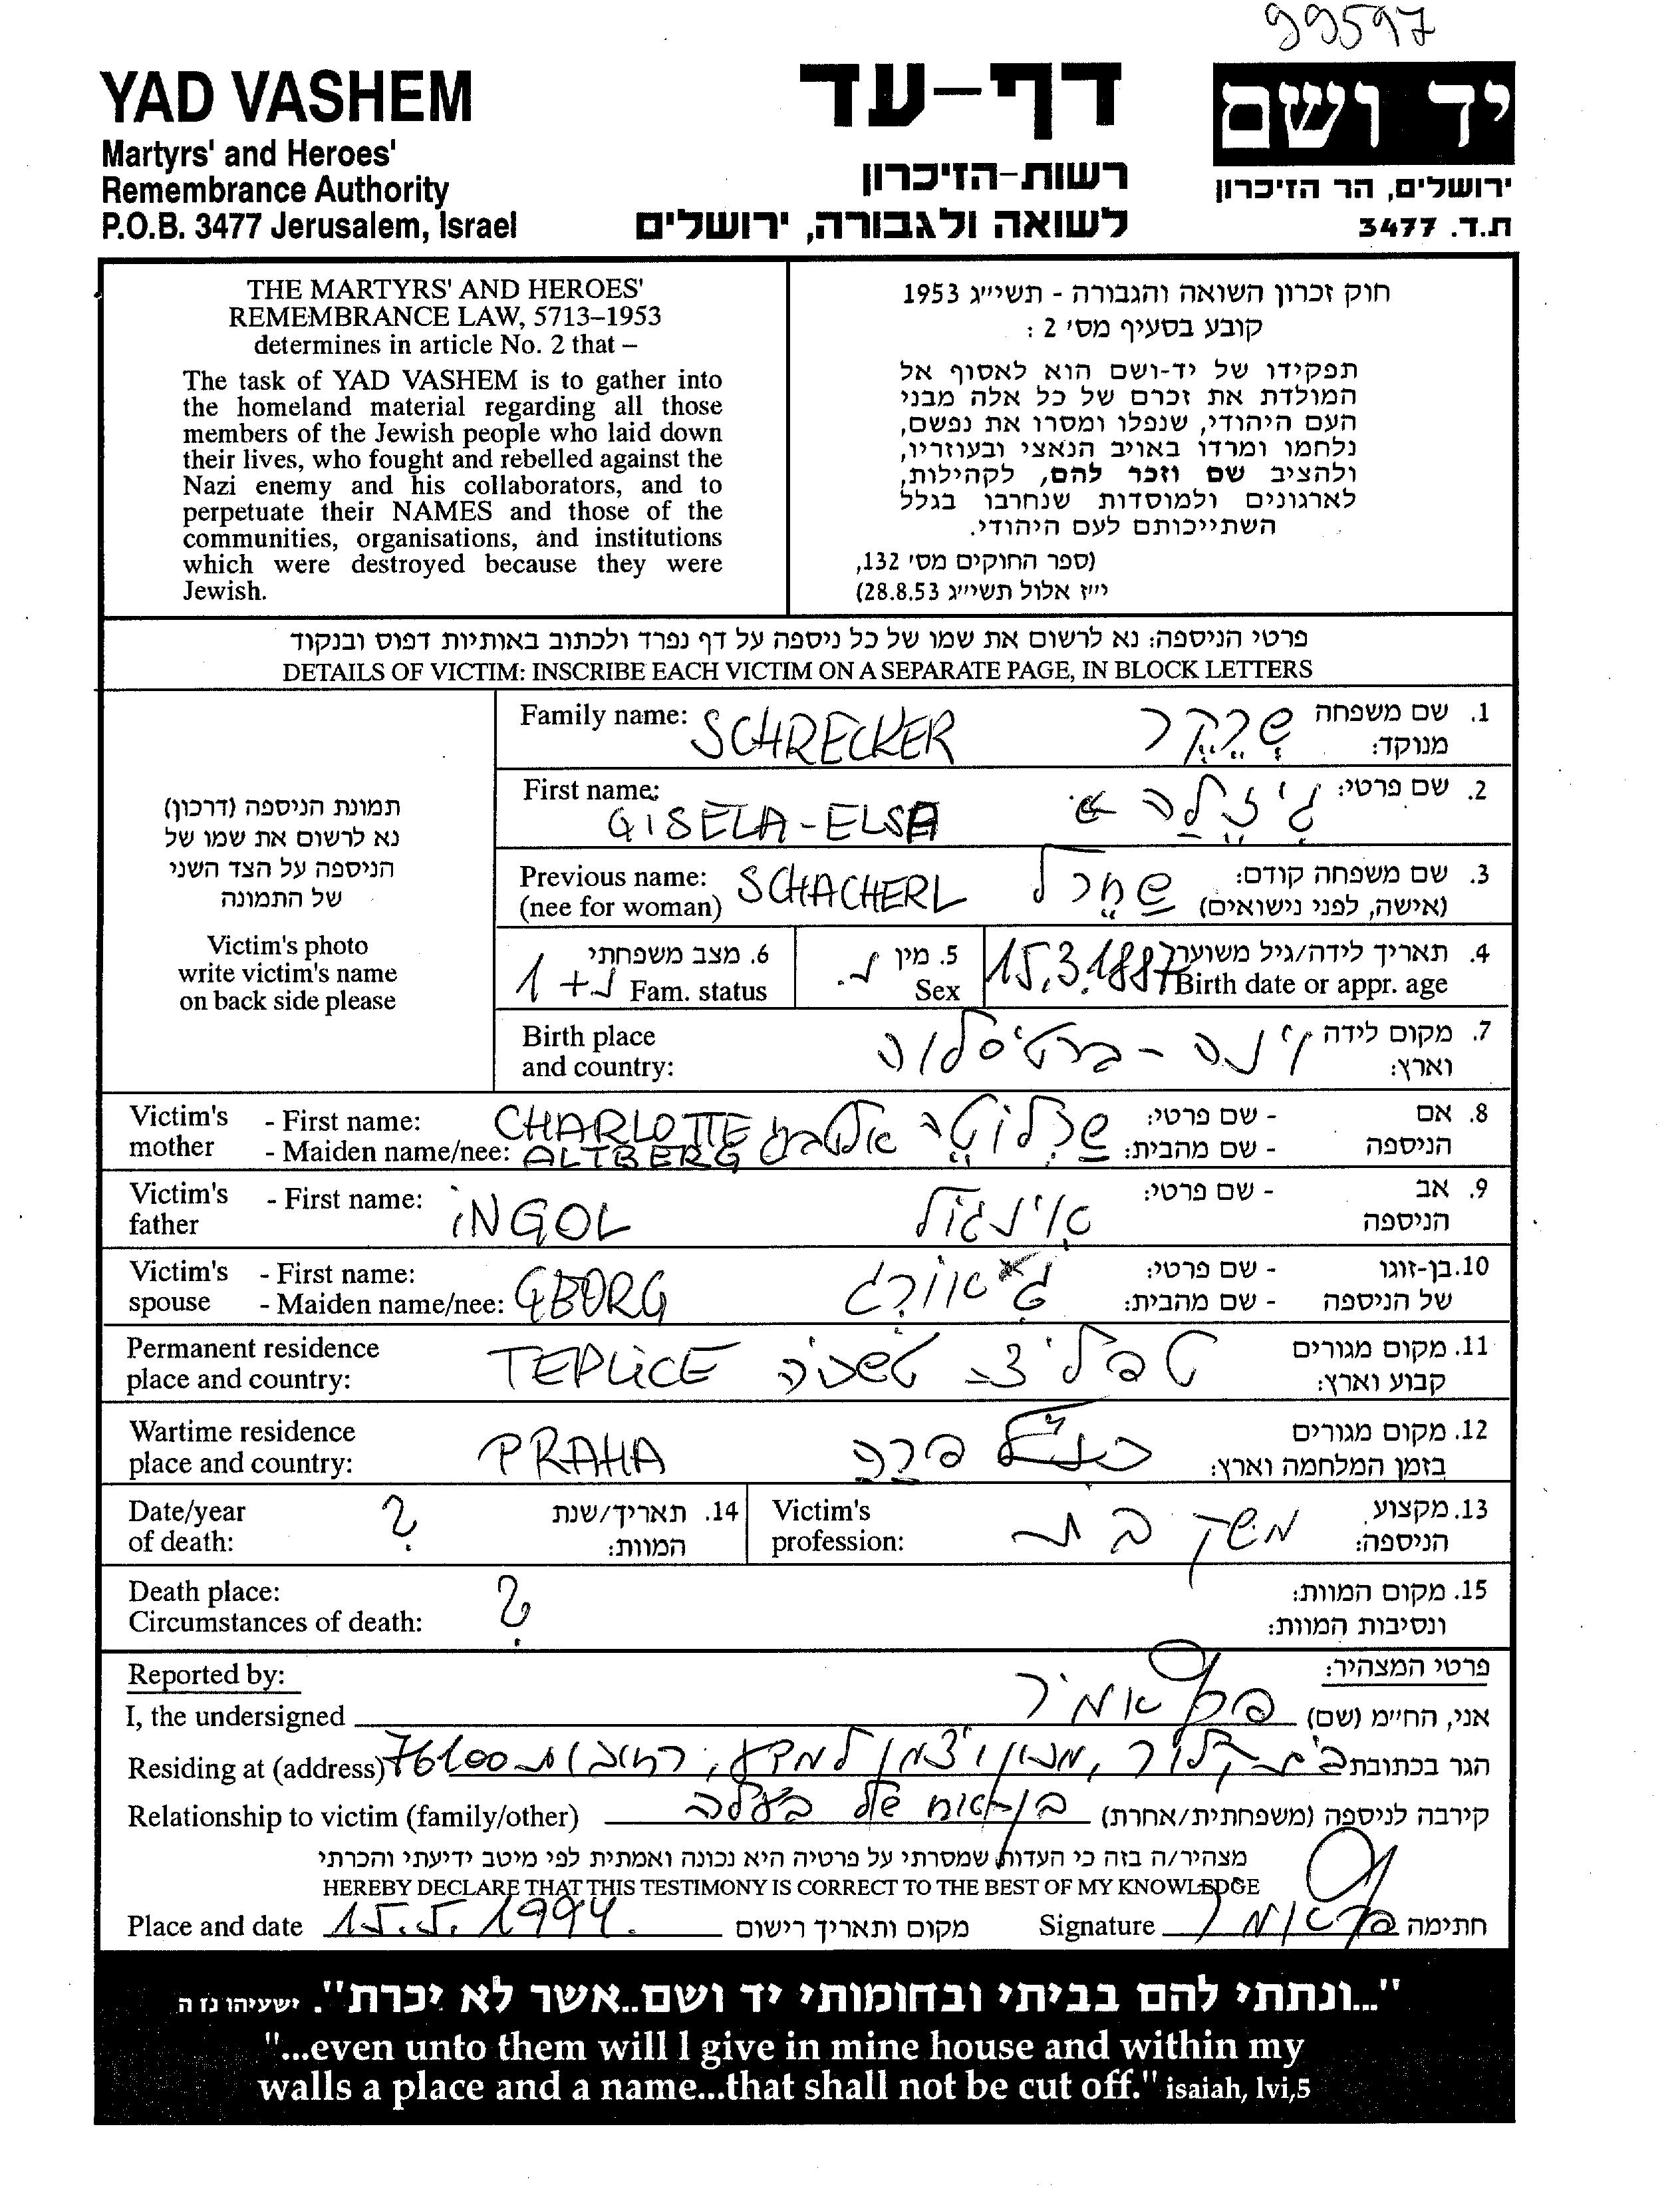 99597
YAD VASHEM
Martyrs' and Heroes'
Remembrance Authority
P.O.B. 3477 Jerusalem, Israel
דף-עד
רשות-הזיכרון
לשואה ולגבורה, ירושלים
יד ושם
ירושלים, הר הזיכרון
ת.ד. 3477
THE MARTYRS' AND HEROES'
REMEMBRANCE LAW, 5713–1953
determines in article No. 2 that –
The task of YAD VASHEM is to gather into
the homeland material regarding all those
members of the Jewish people who laid down
their lives, who fought and rebelled against the
Nazi enemy and his collaborators, and to
perpetuate their NAMES and those of the
communities, organisations, and institutions
which were destroyed because they were
Jewish.
חוק זכרון השואה והגבורה - תשי״ג 1953
קובע בסעיף מס׳ 2 :
תפקידו של יד-ושם הוא לאסוף אל
המולדת את זכרם של כל אלה מבני
העם היהודי, שנפלו ומסרו את נפשם,
נלחמו ומרדו באויב הנאצי ובעוזריו,
ולהציב שם וזכר להם, לקהילות,
לארגונים ולמוסדות שנחרבו בגלל
השתייכותם לעם היהודי.
(ספר החוקים מס׳ 132,
י״ז אלול תשי״ג 28.8.53)
פרטי הניספה: נא לרשום את שמו של כל ניספה על דף נפרד ולכתוב באותיות דפוס ובנקוד
DETAILS OF VICTIM: INSCRIBE EACH VICTIM ON A SEPARATE PAGE, IN BLOCK LETTERS
תמונת הניספה (דרכון)
נא לרשום את שמו של
הניספה על הצד השני
של התמונה
Victim's photo
write victim's name
on back side please
Family name: SCHRECKER שרקר 1. שם משפחה
מנוקד:
First name: GISELA-ELSA גיזלה א. 2. שם פרטי:
Previous name: SCHACHERL שחרל 3. שם משפחה קודם:
(nee for woman) (אישה, לפני נישואים)
1+נ 6. מצב משפחתי
Fam. status
נ. 5. מין
Sex
15.3.1887 4. תאריך לידה/גיל משוער
Birth date or appr. age
Birth place וינה - ברטיסלוה 7. מקום לידה
and country: וארץ:
Victim's - First name: CHARLOTTE שרלוטה אלטברג - שם פרטי: 8. אם
mother - Maiden name/nee: ALTBERG - שם מהבית: הניספה
Victim's - First name: INGOL אינגול - שם פרטי: 9. אב
father הניספה
Victim's - First name: GEORG גאורג - שם פרטי: 10. בן-זוגו
spouse - Maiden name/nee: - שם מהבית: של הניספה
Permanent residence TEPLICE טפליצה 11. מקום מגורים
place and country: קבוע וארץ:
Wartime residence PRAHA פרהה 12. מקום מגורים
place and country: בזמן המלחמה וארץ:
Date/year ? 14. תאריך/שנת
of death: המוות:
Victim's משק בית 13. מקצוע
profession: הניספה:
Death place: ? 15. מקום המוות:
Circumstances of death: ונסיבות המוות:
Reported by: פרטי המצהיר:
I, the undersigned אמיר אני, החי״מ (שם)
Residing at (address) מכון ויצמן למדע, רחובות 76100 הגר בכתובת
Relationship to victim (family/other) בן אח של בעלה קירבה לניספה (משפחתית/אחרת)
מצהיר/ה בזה כי העדות שמסרתי על פרטיה היא נכונה ואמתית לפי מיטב ידיעתי והכרתי
HEREBY DECLARE THAT THIS TESTIMONY IS CORRECT TO THE BEST OF MY KNOWLEDGE
Place and date 15.5.1994. מקום ותאריך רישום Signature חתימה
"...ונתתי להם בביתי ובחומותי יד ושם..אשר לא יכרת". ישעיהו נז ה
"...even unto them will I give in mine house and within my
walls a place and a name...that shall not be cut off." isaiah, lvi,5